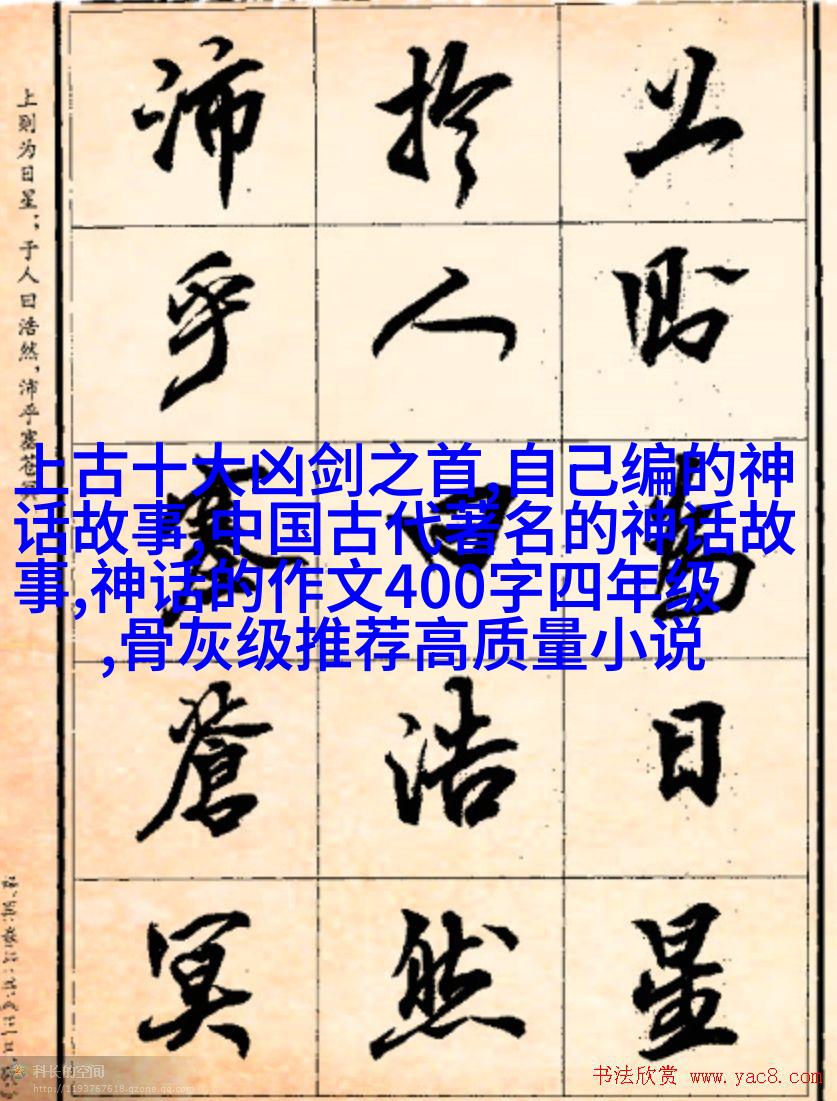 上则为日星
於人曰浩然
沛乎塞苍冥
上则为日星；于人曰浩然，沛乎塞苍冥
上古十大凶剑之首,自己编的神
话故事,中国古代著名的神话故
事,神话的作文400字四年级
,骨灰级推荐高质量小说
科长的空间
http://1193767618.qzone.qq.com
书法欣赏 www.yac8.com